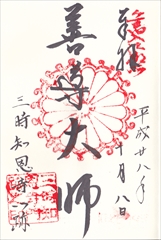 奉拝
平成廿八年
十月八日
善導大師
三時知恩寺